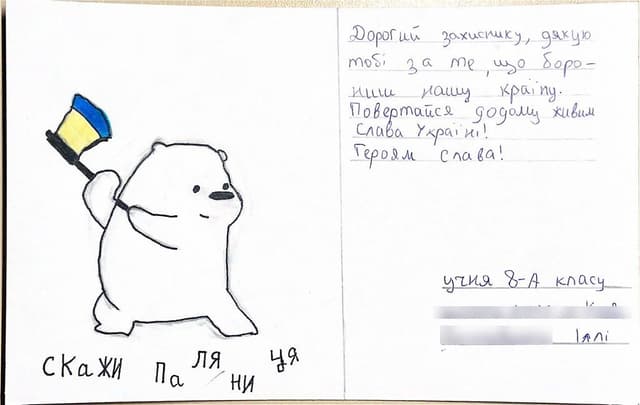 скажи паляниця
Дорогий захиснику, дякую
тобі за те, що боро-
ниш нашу країну.
Повертайся додому живим
Слава Україні!
Героям слава!
учня 8-А класу
Ілі